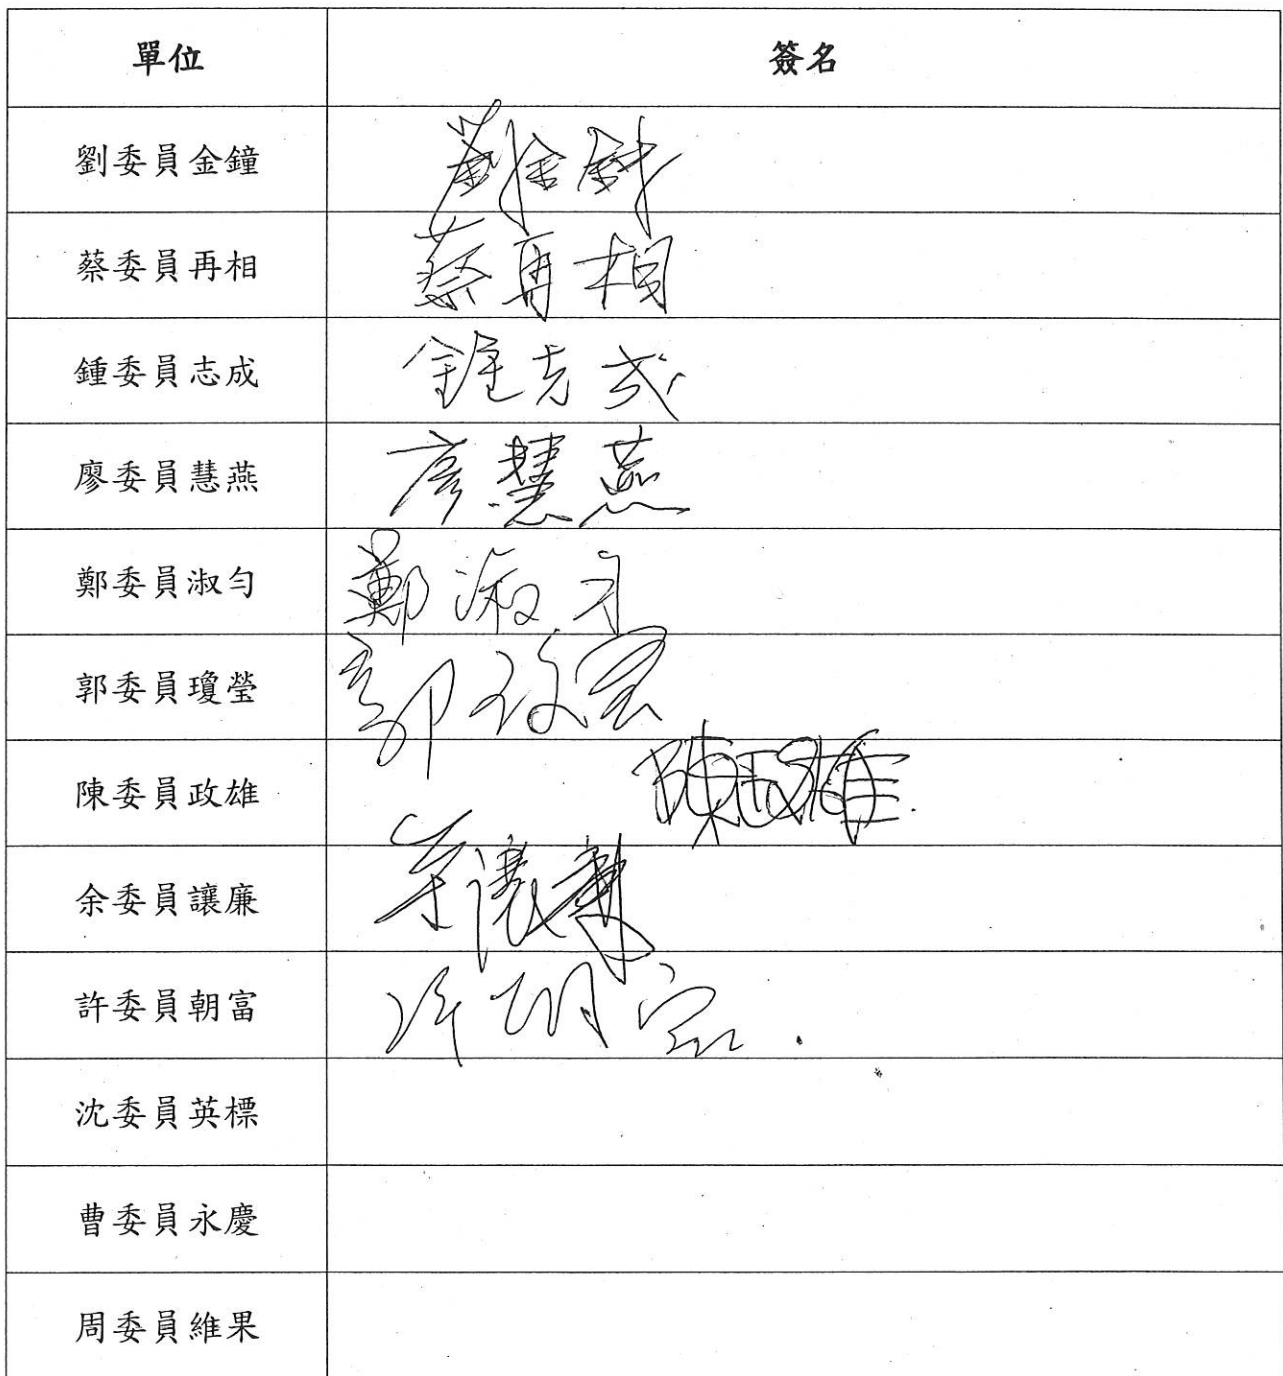 單位 簽名
劉委員金鐘
蔡委員再相 蔡再相
鍾委員志成
廖委員慧燕 廖慧燕
鄭委員淑勻 鄭淑勻
郭委員瓊瑩
陳委員政雄 陳政雄
余委員讓廉 余讓廉
許委員朝富 許朝富
沈委員英標
曹委員永慶
周委員維果